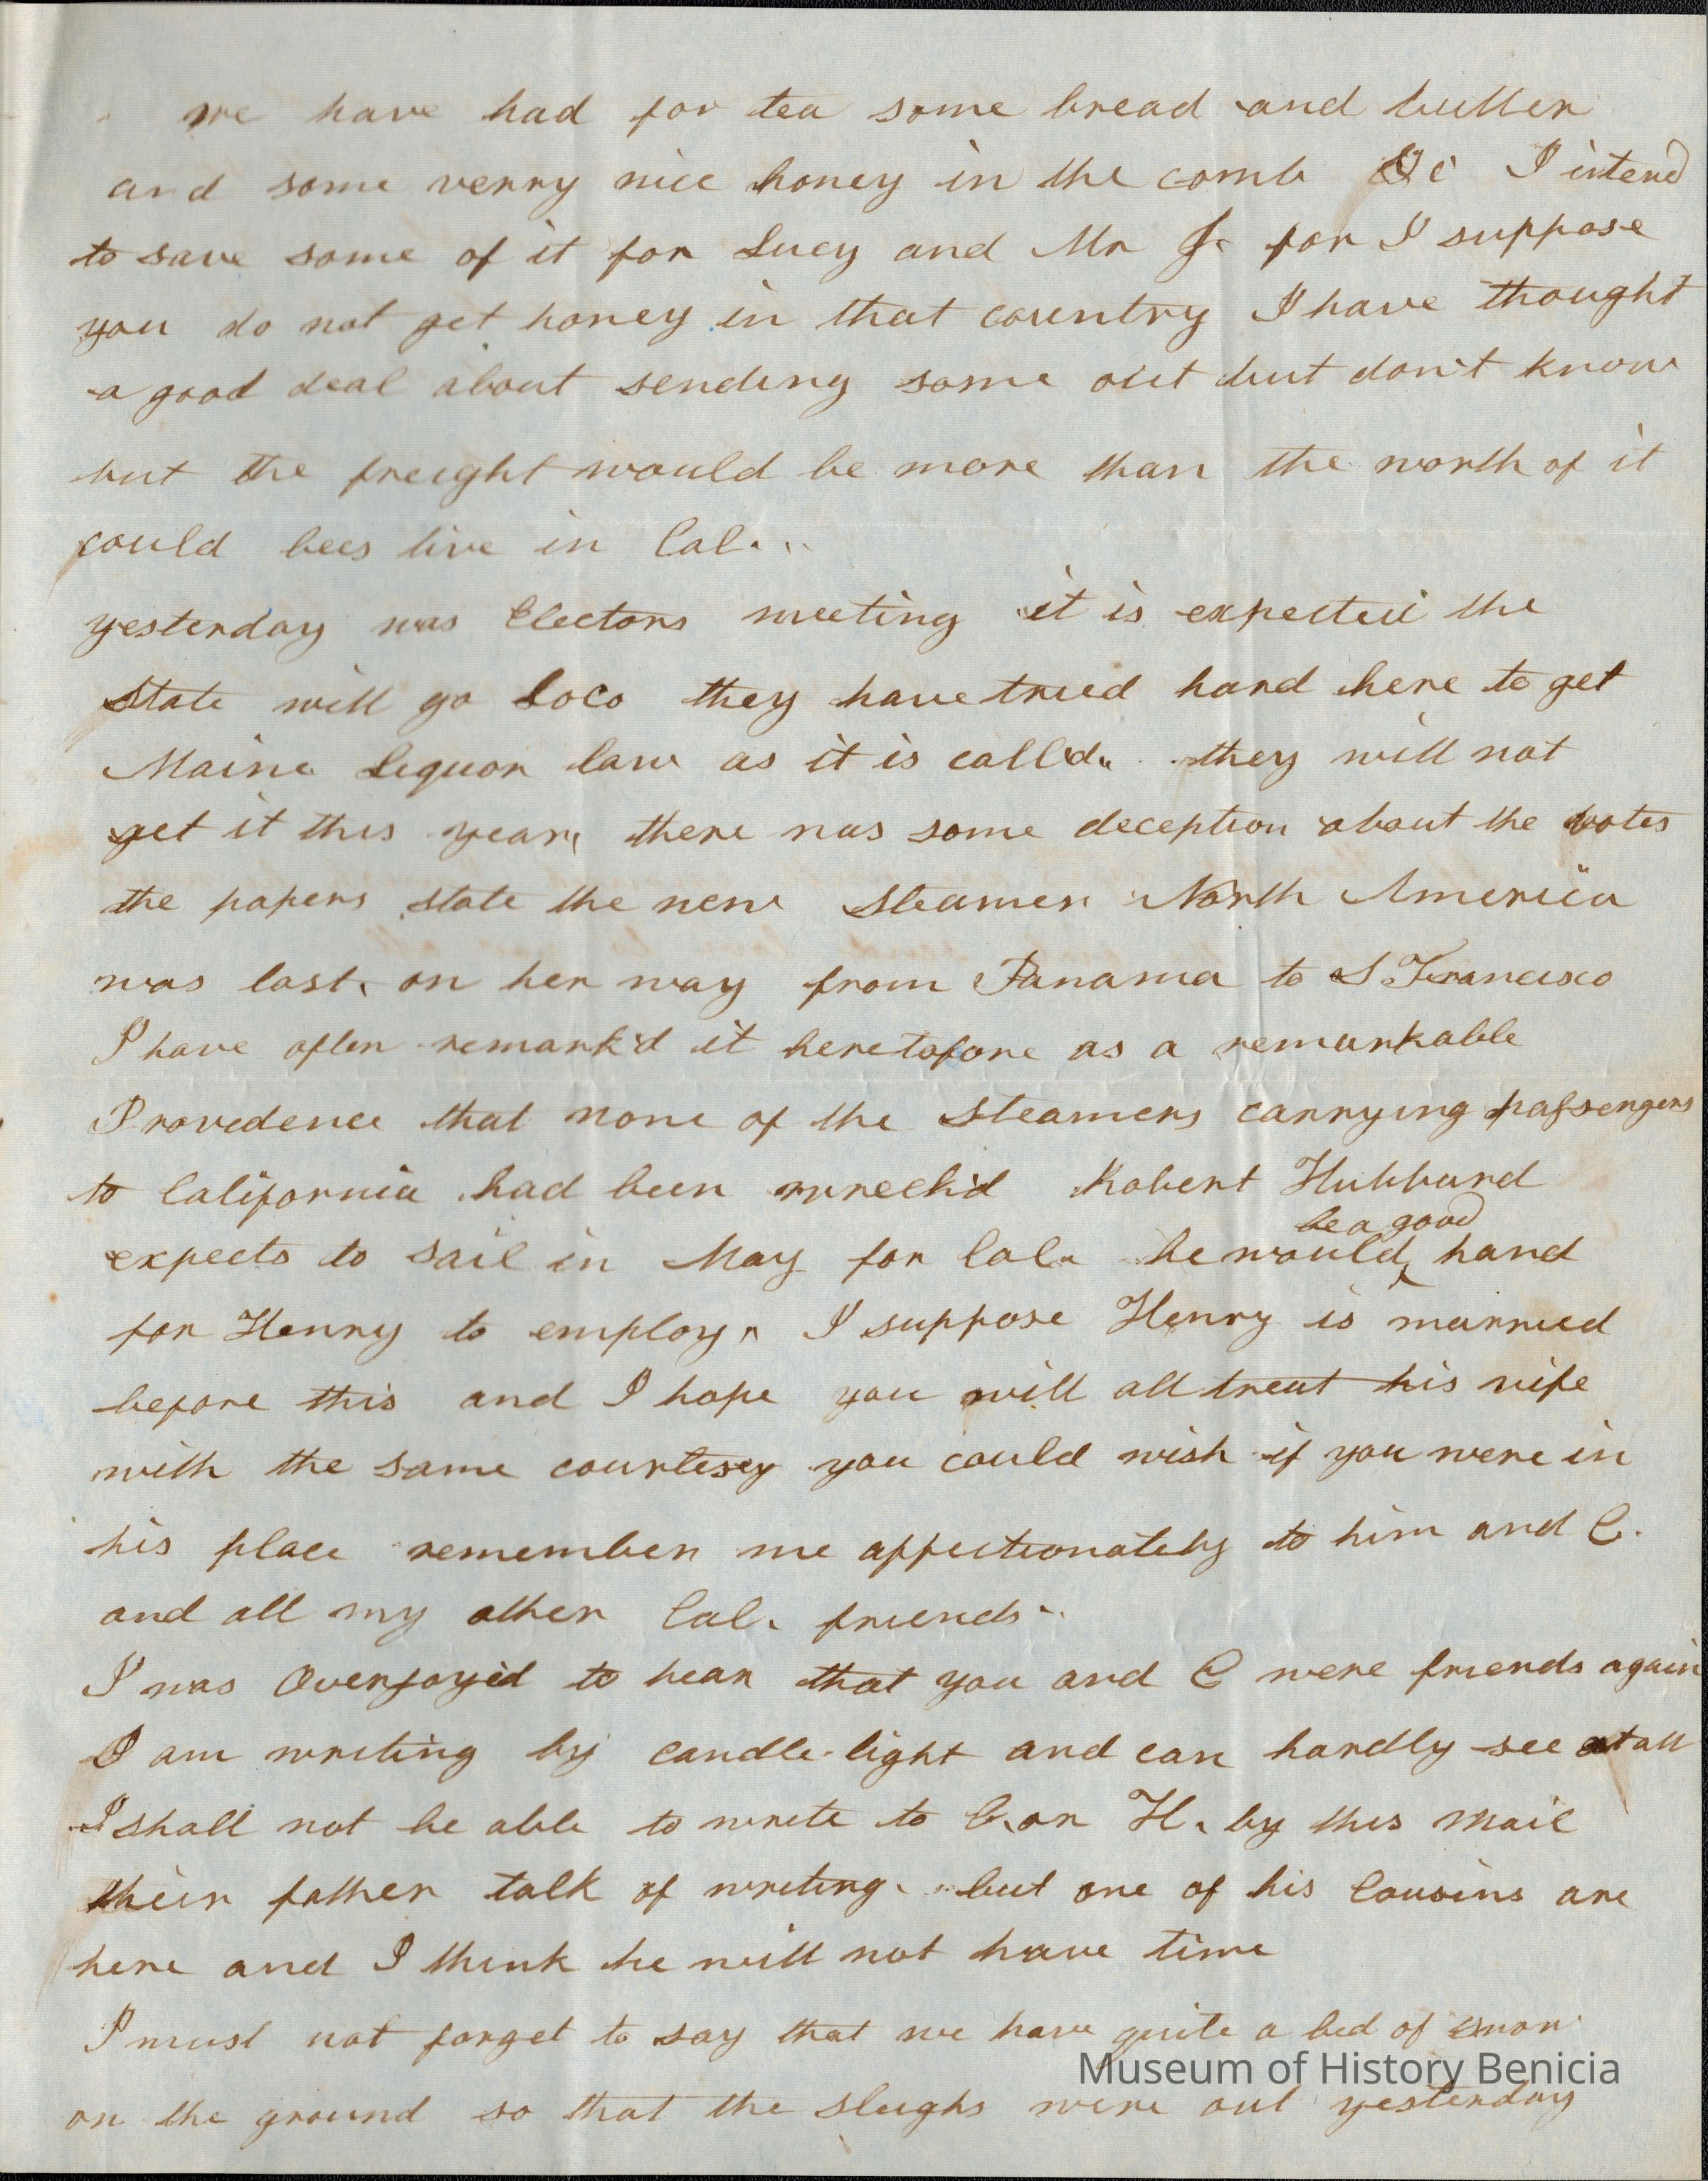 we have had for tea some bread and butter
and some verry nice honey in the comb &c I intend
to save some of it for Lucy and Mr J. for I suppose
you do not get honey in that country I have thought
a good deal about sending some out but don't know
but the freight would be more than the worth of it
could bees live in Cal..
yesterday was Electors meeting it is expected the
State will go Loco they have tried hard here to get
Maine Liquor law as it is call'd.. they will not
get it this year, there was some deception about the votes
the papers state the new Steamer North America
was lost, on her way from Panama to S Francisco
I have often remark'd it heretofore as a remarkable
Providence that none of the Steamers carrying passengers
to California had been wreck'd Robert Hubbard
be a good
expects to sail in May for Cal. he would ‸ hand
for Henry to employ. I suppose Henry is married
before this and I hope you will all treat his wife
with the same courtesy you could wish if you were in
his place remember me affectionately to him and C.
and all my other Cal. friends..
I was Overjoy'd to hear that you and C were friends again
I am writing by candle-light and can hardly see at all
I shall not be able to write to C. or H. by this Mail
their father talk of writing. but one of his Cousins are
here and I think he will not have time
I must not forget to say that we have quite a bed of snow
on the ground so that the sleighs were out yesterday
Museum of History Benicia